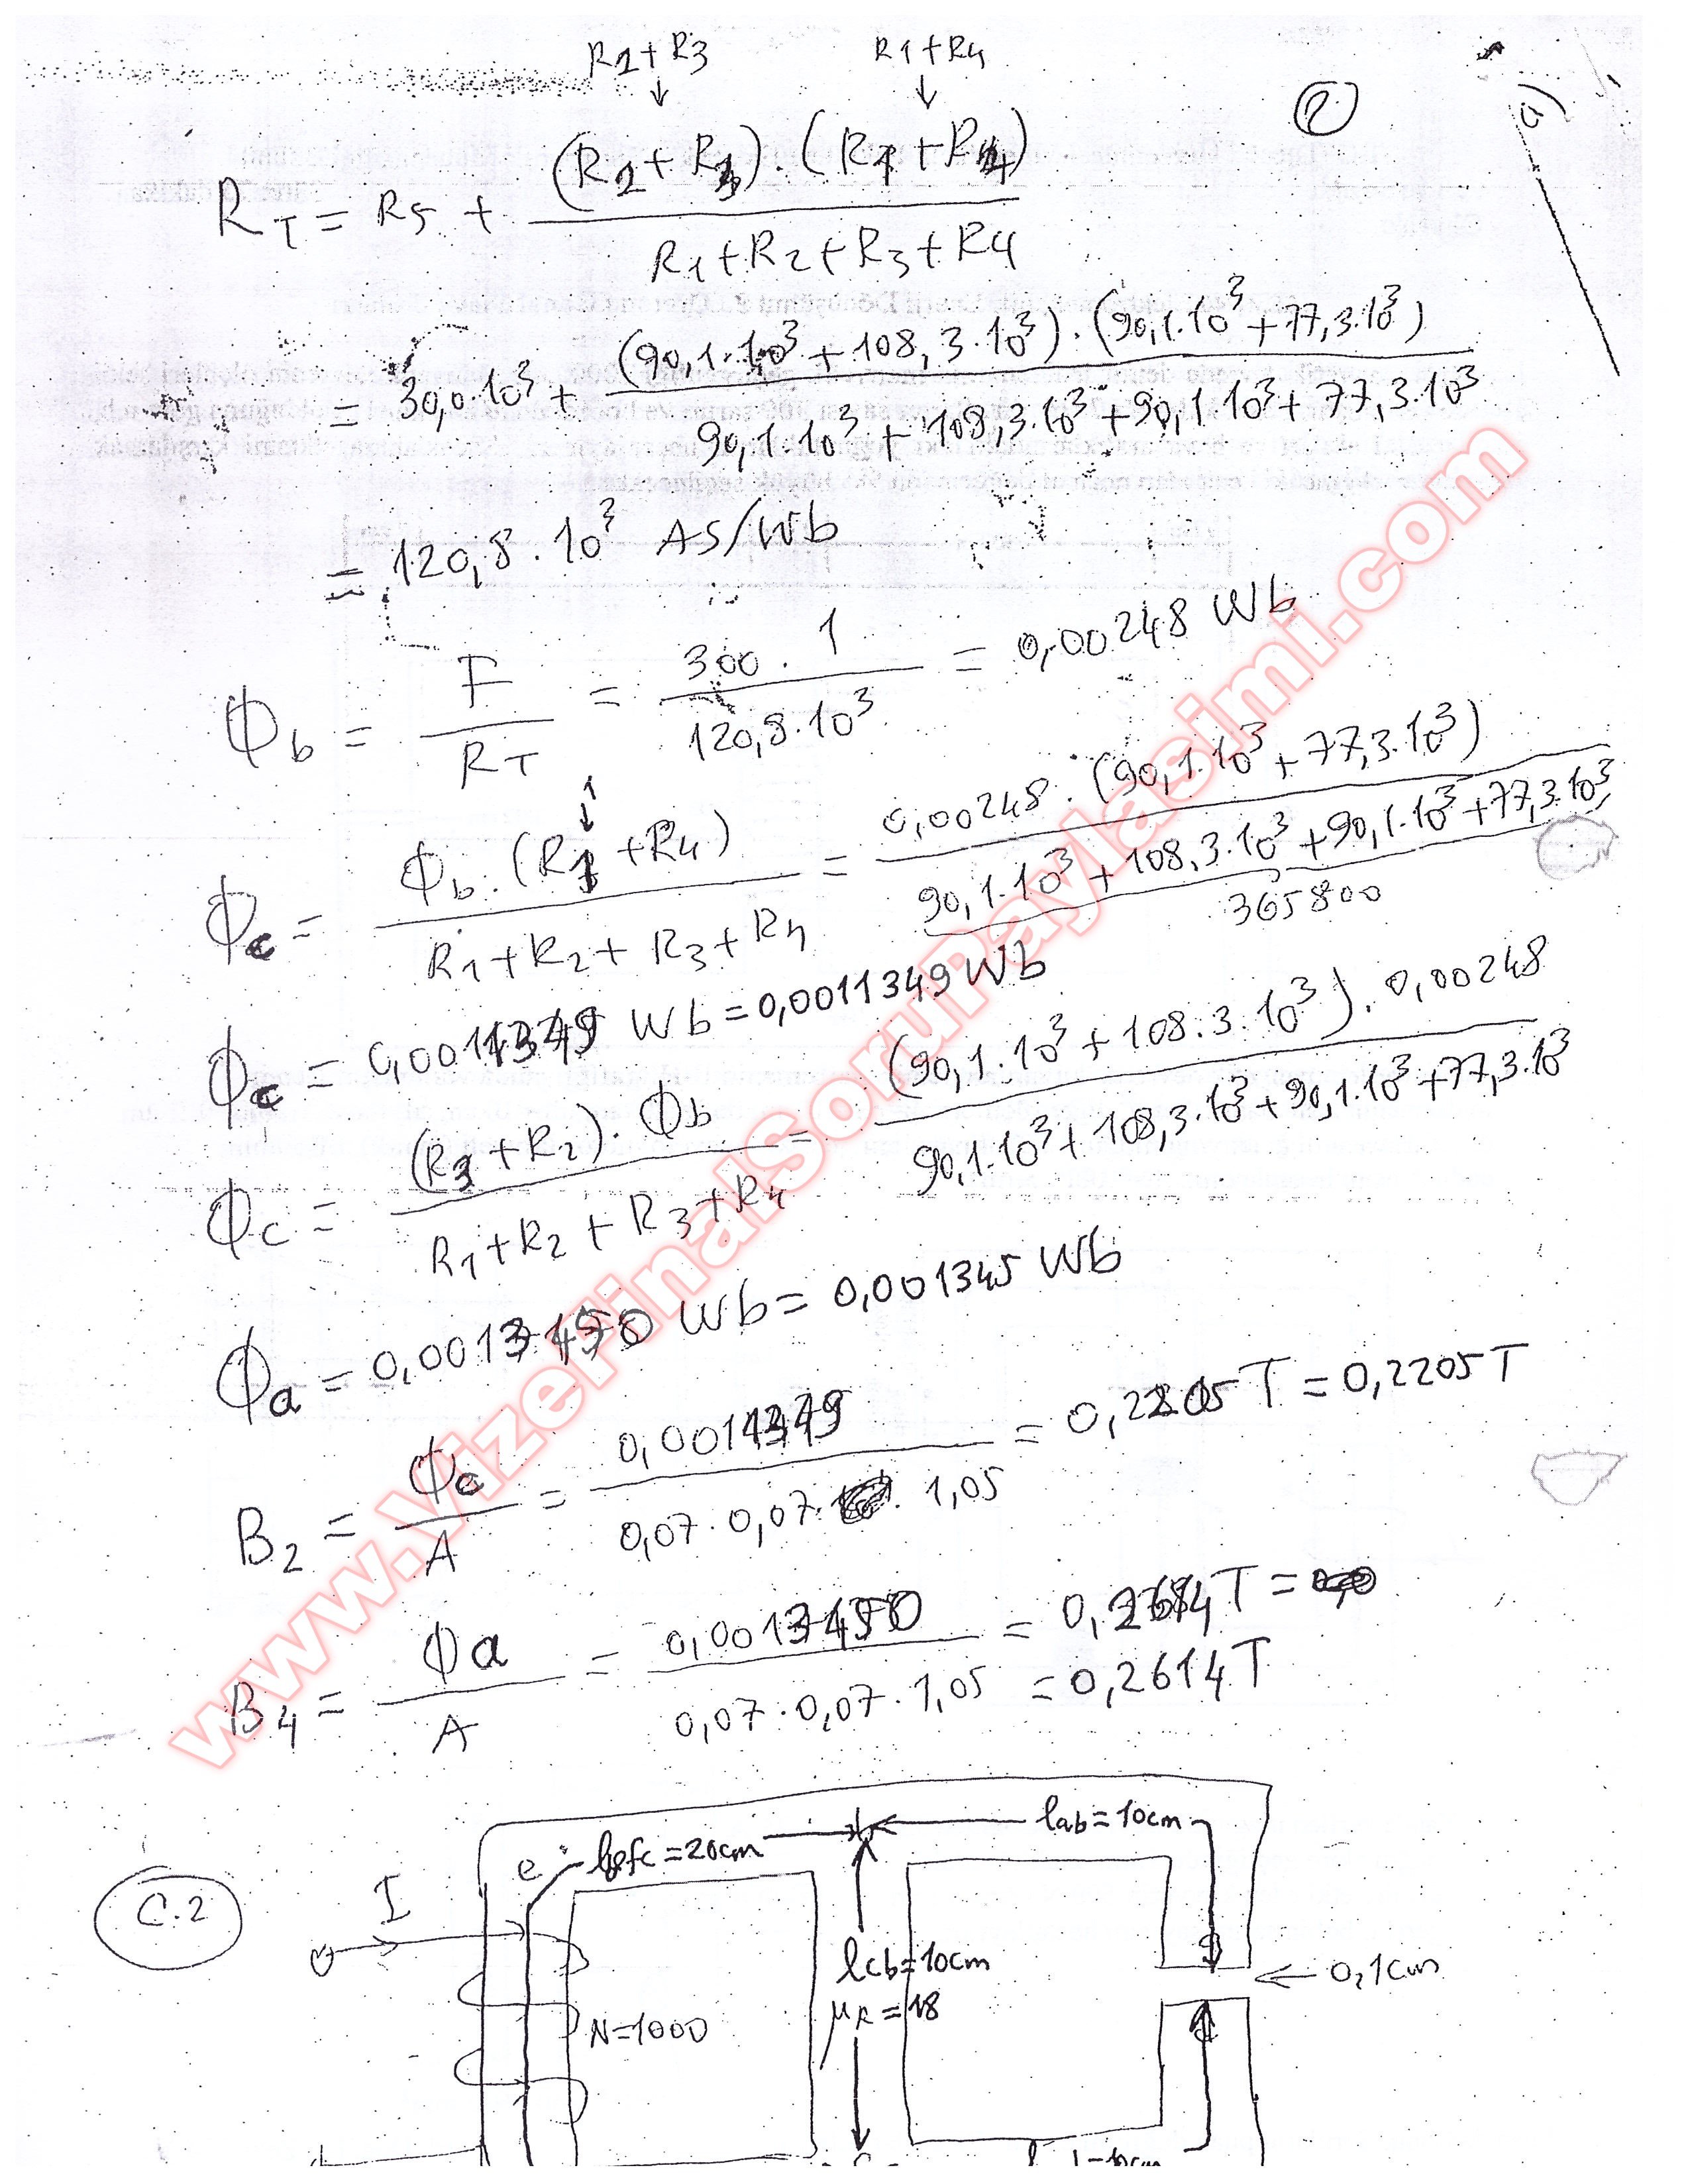 R2+R3 R1+R4
↓ ↓
2
RT = R5 + (R2+R3).(R1+R4) / R1+R2+R3+R4
= 30,0.10³ + (90,1.10³ + 108,3.10³).(90,1.10³ + 77,3.10³) / 90,1.10³ + 108,3.10³ + 90,1.10³ + 77,3.10³
= 120,8.10³ AS/Wb
Φb = F / RT = 300.1 / 120,8.10³ = 0,00248 Wb
1
↓
Φc = Φb.(R1+R4) / R1+R2+R3+R4 = 0,00248.(90,1.10³ + 77,3.10³) / 90,1.10³ + 108,3.10³ + 90,1.10³ + 77,3.10³
365800
Φc = 0,0011349 Wb = 0,0011349 Wb
Φc = (R3+R2).Φb / R1+R2+R3+R4 = (90,1.10³ + 108.3.10³).0,00248 / 90,1.10³ + 108,3.10³ + 90,1.10³ + 77,3.10³
Φa = 0,0013450 Wb = 0,001345 Wb
B2 = Φc / A = 0,0011349 / 0,07.0,07.1,05 = 0,2205 T = 0,2205 T
B4 = Φa / A = 0,0013450 / 0,07.0,07.1,05 = 0,2614 T =
= 0,2614 T
C.2
I
e
lefc = 20cm
lab = 10cm
lcb = 10cm
μr = 18
N=1000
← 0,1cm
www.VizeFinalSoruPaylasimi.com